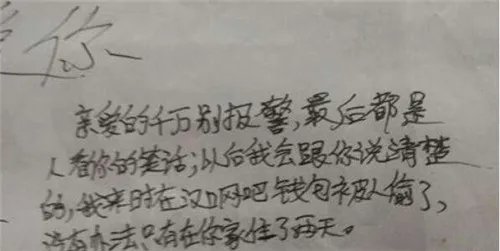 你
亲爱的千万别报警,最后都是
人看你的笑话;以后我会跟你说清楚
的,我来时在汉口网吧钱包被人偷了,
没有办法只有在你家住了两天。